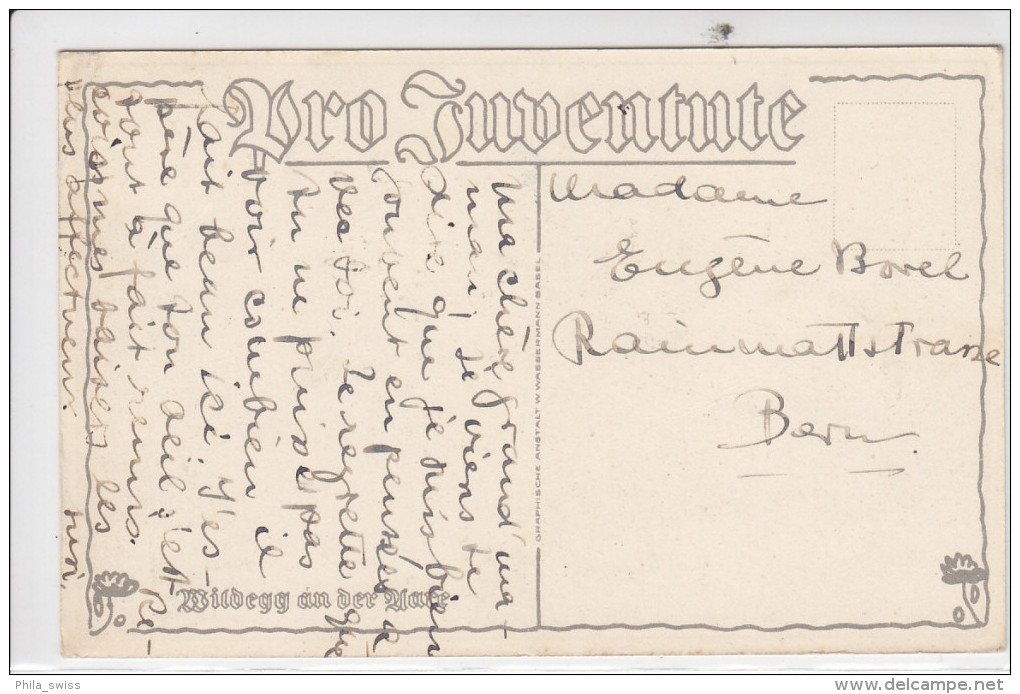 Pro Juventute
Ma chère grand'ma-
man, je viens te
dire que je suis bien
souvent en pensées a-
vec toi. Je regrette que
tu ne puisse pas
voir combien il
fait beau ici. J'es-
père que ton oeil s'est
tout à fait remis. Re-
çois mes baisers les
plus affectueux.
Wildegg an der Aare
GRAPHISCHE ANSTALT W. WASSERMANN BASEL
Madame
Eugène Borel
Rainmattstrasse
Bern
Phila_swiss
delcampe.net